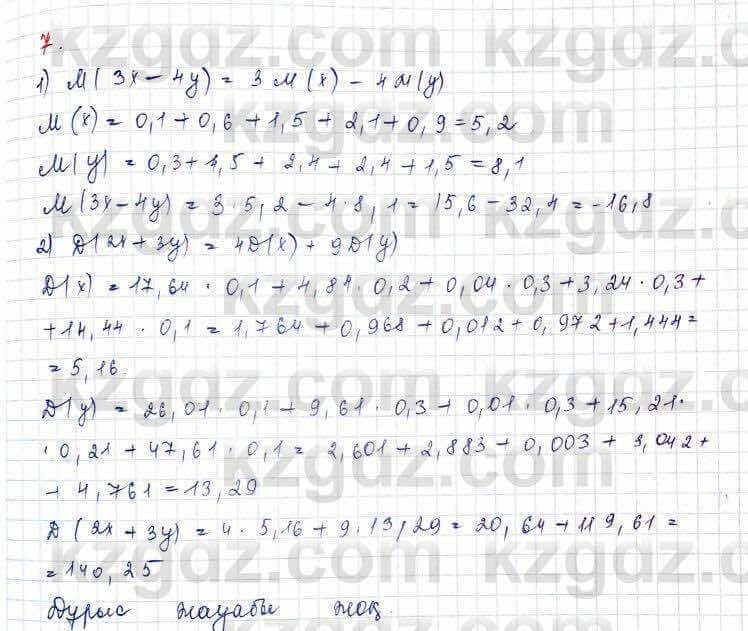 7.
1) M(3x-4y) = 3M(x) - 4M(y)
M(x) = 0,1+0,6+1,5+2,1+0,9=5,2
M(y) = 0,3+1,5+2,4+2,4+1,5=8,1
M(3x-4y) = 3·5,2-4·8,1=15,6-32,4=-16,8
2) D(2x+3y) = 4D(x)+9D(y)
D(x) = 17,64·0,1+4,84·0,2+0,04·0,3+3,24·0,3+
+14,44·0,1=1,764+0,968+0,012+0,972+1,444=
=5,16.
D(y) = 26,01·0,1+9,61·0,3+0,01·0,3+15,21·
·0,21+47,61·0,1=2,601+2,883+0,003+3,042+
+4,761=13,29
D(2x+3y) = 4·5,16+9·13,29=20,64+119,61=
=140,25
Дұрыс жауабы жоқ.
kzgdz.com